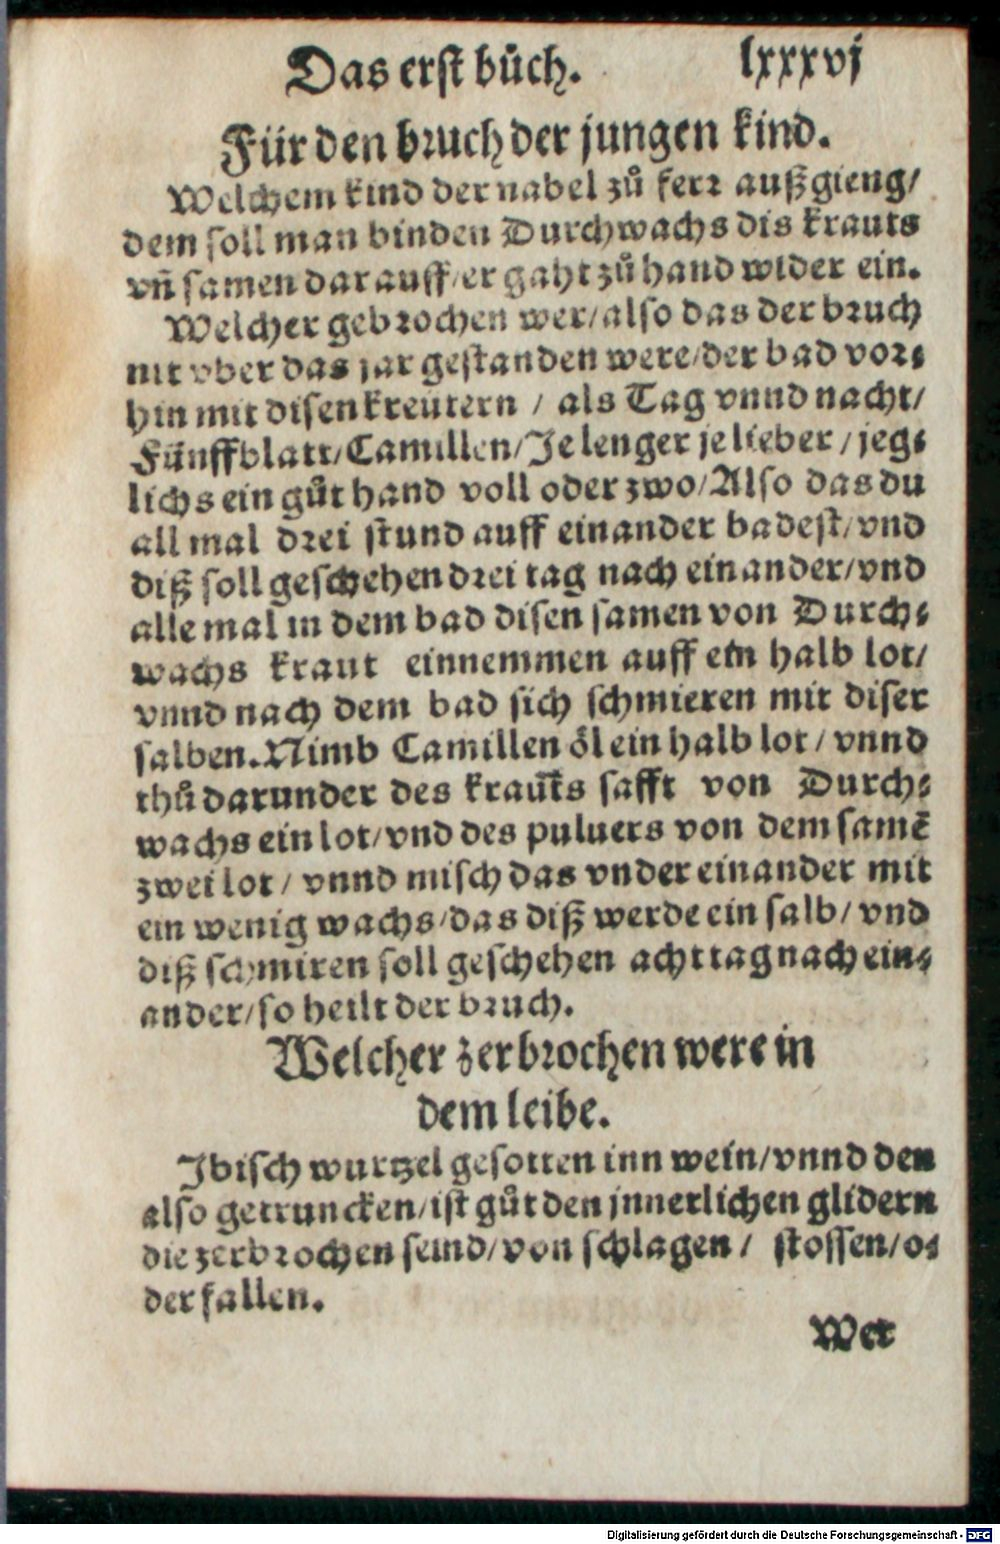 Das erst bůch. lxxxvj
Für den bruch der jungen kind.
Welchem kind der nabel zů ferr außgieng/
dem soll man binden Durchwachs dis krauts
vñ samen darauff/er gaht zůhand wider ein.
Welcher gebrochen wer/also das der bruch
nit vber das jar gestanden were/der bad vor⸗
hin mit disen kreutern / als Tag vnnd nacht/
Fünffblatt/Camillen/Je lenger je lieber / jeg⸗
lichs ein gůt hand voll oder zwo/Also das du
all mal drei stund auff einander badest/vnd
diß soll geschehen drei tag nach einander/vnd
alle mal in dem bad disen samen von Durch⸗
wachs kraut einnemmen auff ein halb lot/
vnnd nach dem bad sich schmieren mit diser
salben. Nimb Camillen ôl ein halb lot / vnnd
thů darunder des krauts safft von Durch⸗
wachs ein lot/vnd des puluers von dem samẽ
zwei lot / vnnd misch das vnder einander mit
ein wenig wachs/das diß werde ein salb/ vnd
diß schmiren soll geschehen acht tag nach ein⸗
ander/so heilt der bruch.
Welcher zerbrochen were in
dem leibe.
Jbisch wurtzel gesotten inn wein/vnnd den
also getruncken/ist gůt den jnnerlichen glidern
die zerbrochen seind/von schlagen / stossen/o⸗
der fallen.
Wer
Digitalisierung gefördert durch die Deutsche Forschungsgemeinschaft - DFG